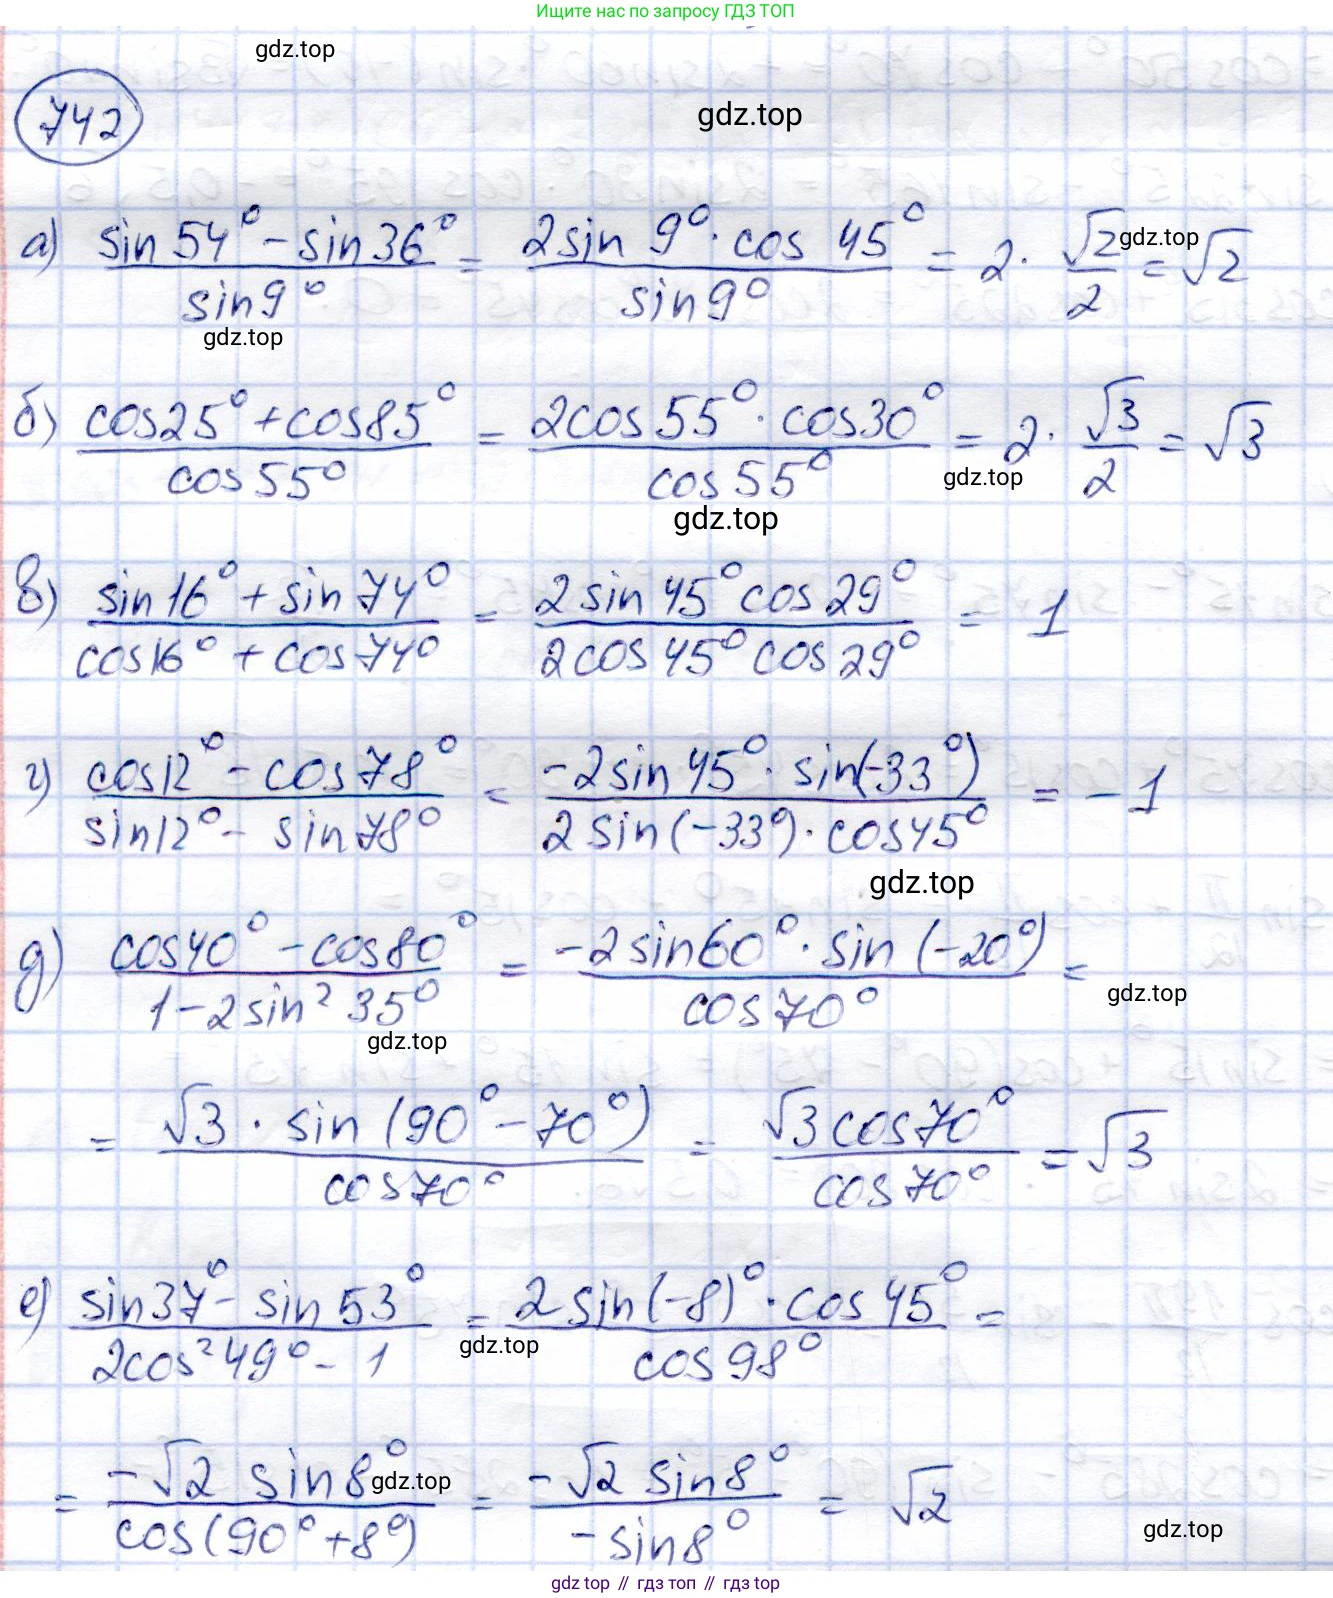 Ищите нас по запросу ГДЗ ТОП
gdz.top
742
gdz.top
а) (sin 54° - sin 36°) / (sin 9°) = (2 sin 9° · cos 45°) / (sin 9°) = 2 · √2/2 = √2
gdz.top
gdz.top
б) (cos 25° + cos 85°) / (cos 55°) = (2 cos 55° · cos 30°) / (cos 55°) = 2 · √3/2 = √3
gdz.top
gdz.top
в) (sin 16° + sin 74°) / (cos 16° + cos 74°) = (2 sin 45° cos 29°) / (2 cos 45° cos 29°) = 1
г) (cos 12° - cos 78°) / (sin 12° - sin 78°) = (-2 sin 45° · sin(-33°)) / (2 sin(-33°) · cos 45°) = -1
gdz.top
д) (cos 40° - cos 80°) / (1 - 2 sin² 35°) = (-2 sin 60° · sin (-20°)) / (cos 70°) =
gdz.top
gdz.top
= (√3 · sin (90° - 70°)) / (cos 70°) = (√3 cos 70°) / (cos 70°) = √3
е) (sin 37° - sin 53°) / (2 cos² 49° - 1) = (2 sin (-8)° · cos 45°) / (cos 98°) =
gdz.top
= (-√2 sin 8°) / (cos (90° + 8°)) = (-√2 sin 8°) / (-sin 8°) = √2
gdz.top
gdz.top
gdz top // гдз топ // гдз top